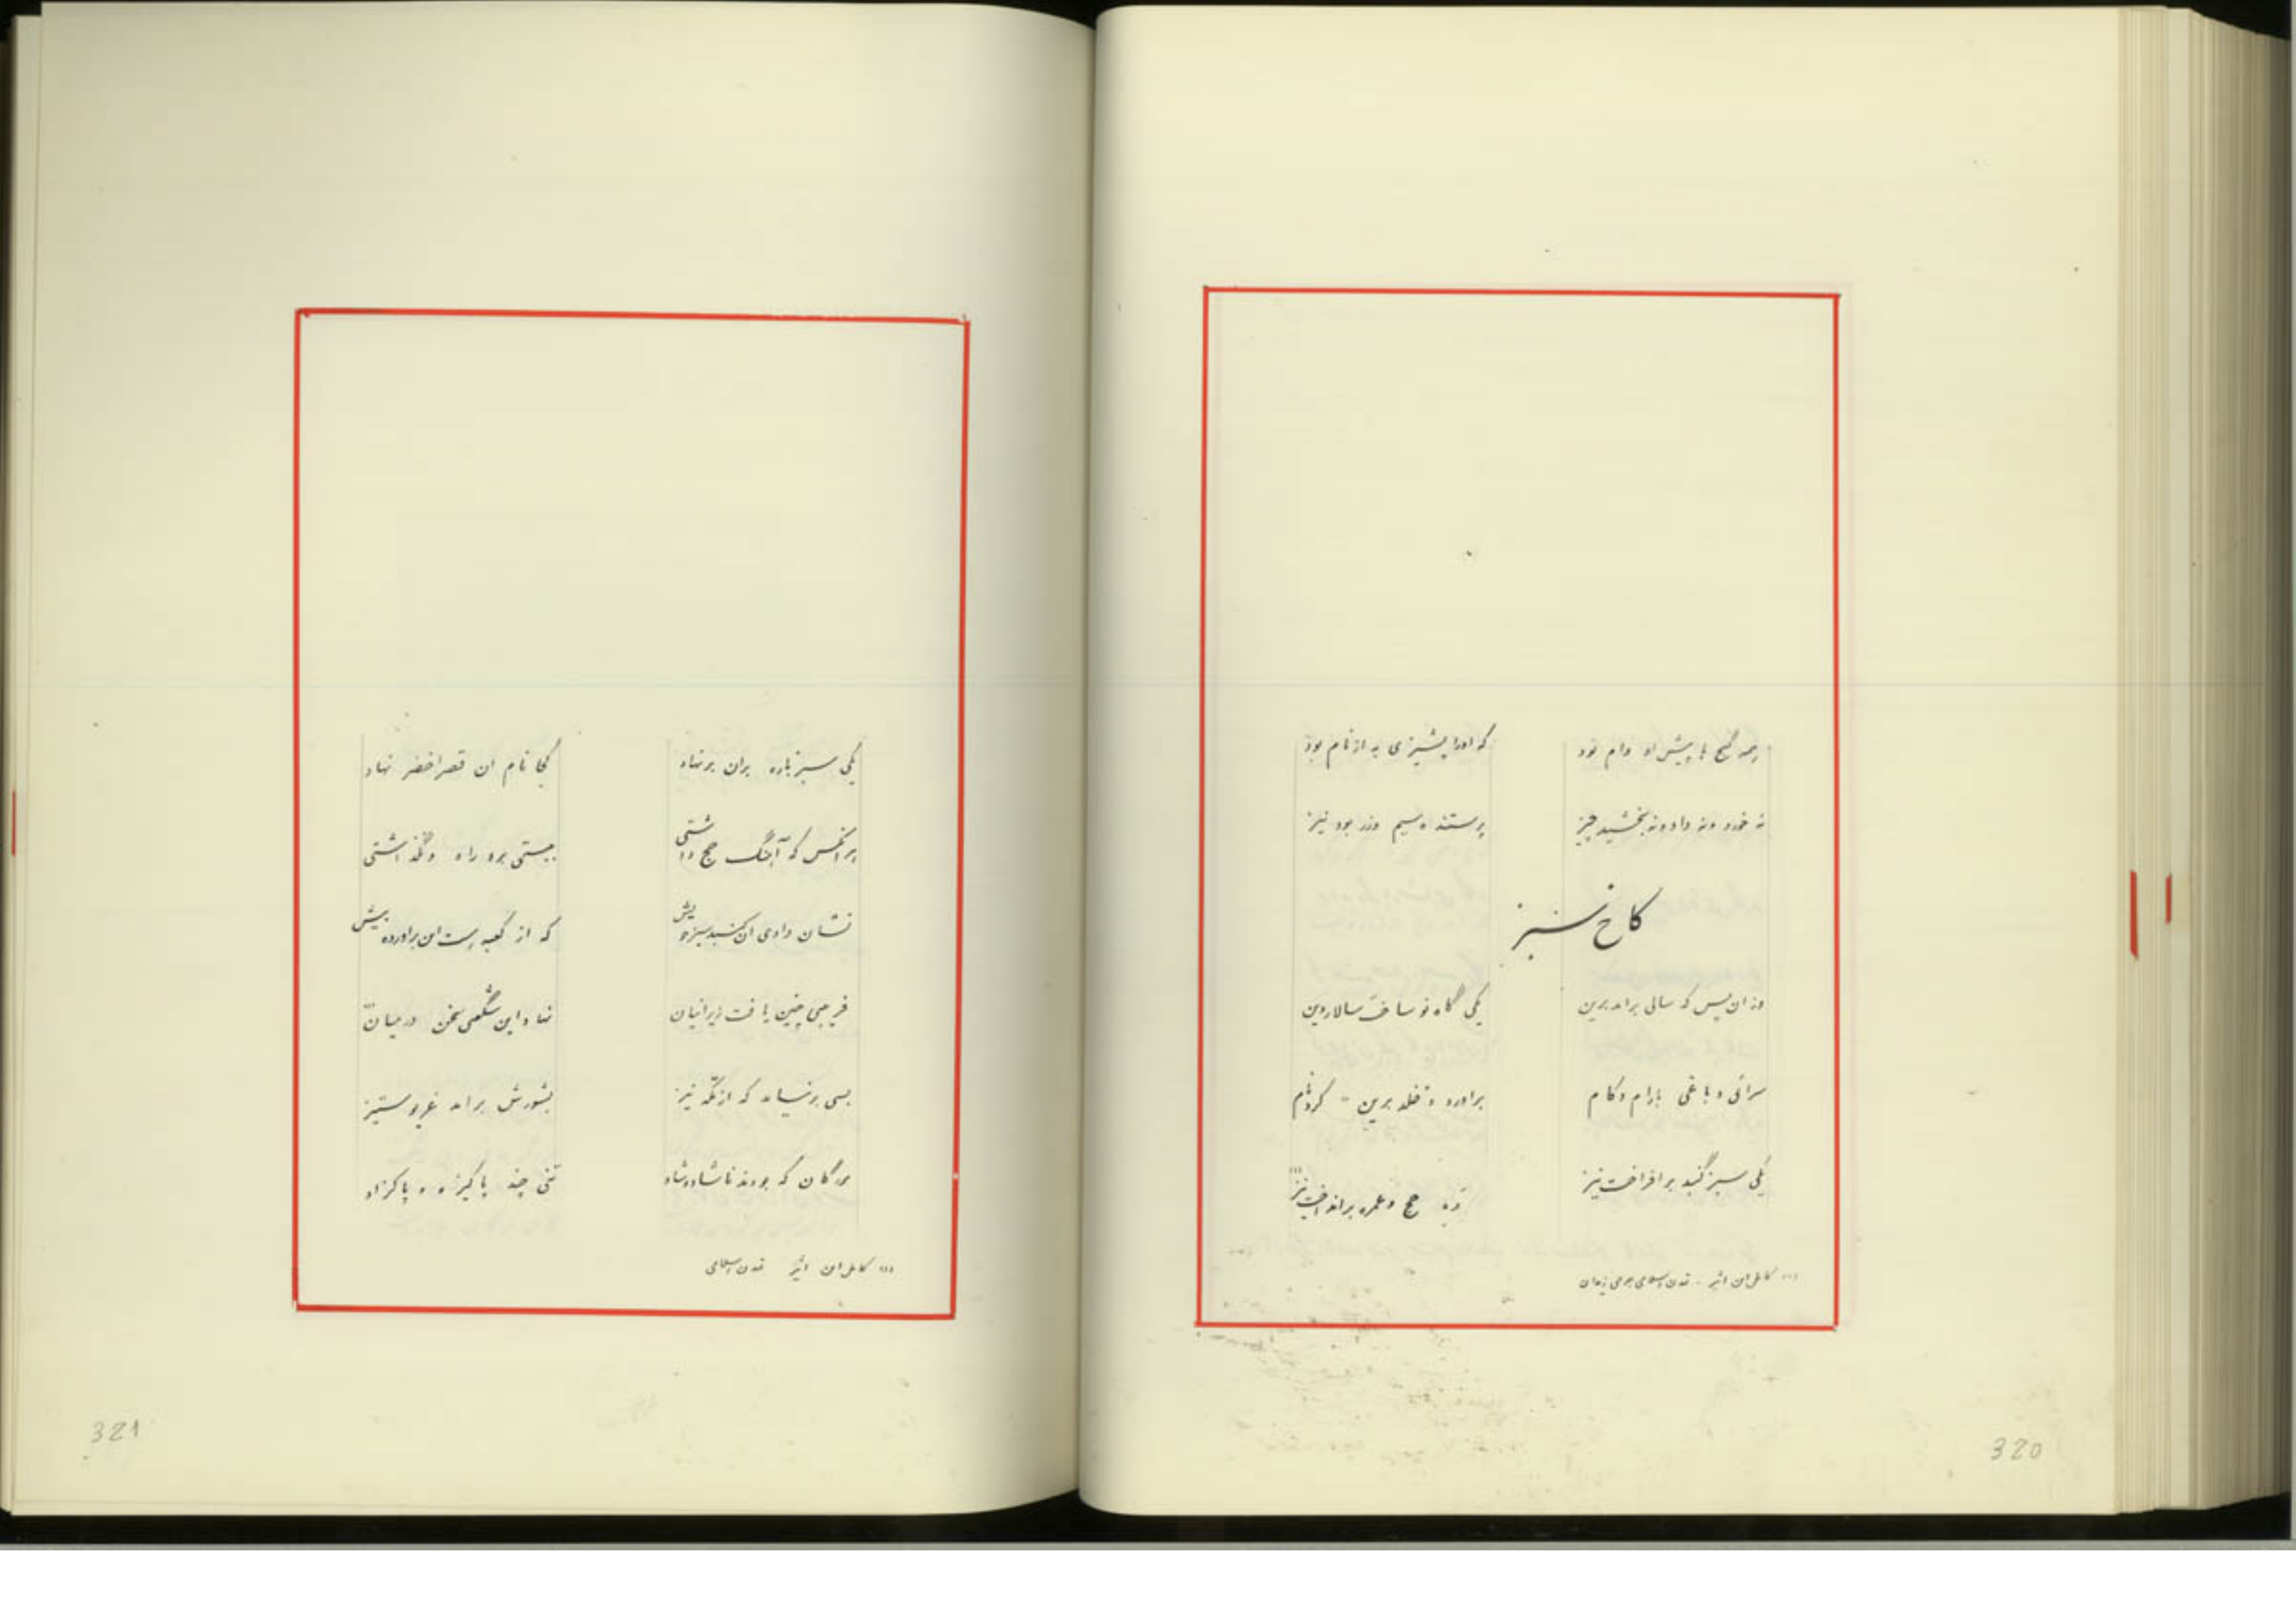 همه گنج ها پیش او دام بود که او را پشیزی به از نام بود
نه خورد و نه داد و نه بخشید چیز پرستنده سیم و زر بود نیز
کاخ سبز
وز ان پس که سالی برامد برین یکی گاه نو ساخت سالار دین
سرائی و باغی بارام و کام براورد و خلد برین کرد نام
یکی سبز گنبد برافراخت نیز حج و عمره برانداخت نیز
کامل ابن اثیر - تمدن اسلامی جرجی زیدان
320
یکی سبز باره بران بر نهاد کجا نام ان قصر اخضر نهاد
هر انکس که آهنگ حج داشتی ببستی برو راه و نگذاشتی
نشان دادی ان گنبد سبز و که از کعبه است این براورده بیش
فریبی چنین یافت زیرانیان نهاد این سخن در میان
بسی برنیامد که از مکه نیز بشورش برامد غریو ستیز
بزرگان که بودند ناشاد و شاد تنی چند پاکیزه و پاکزاد
کامل ابن اثیر تمدن اسلامی
321